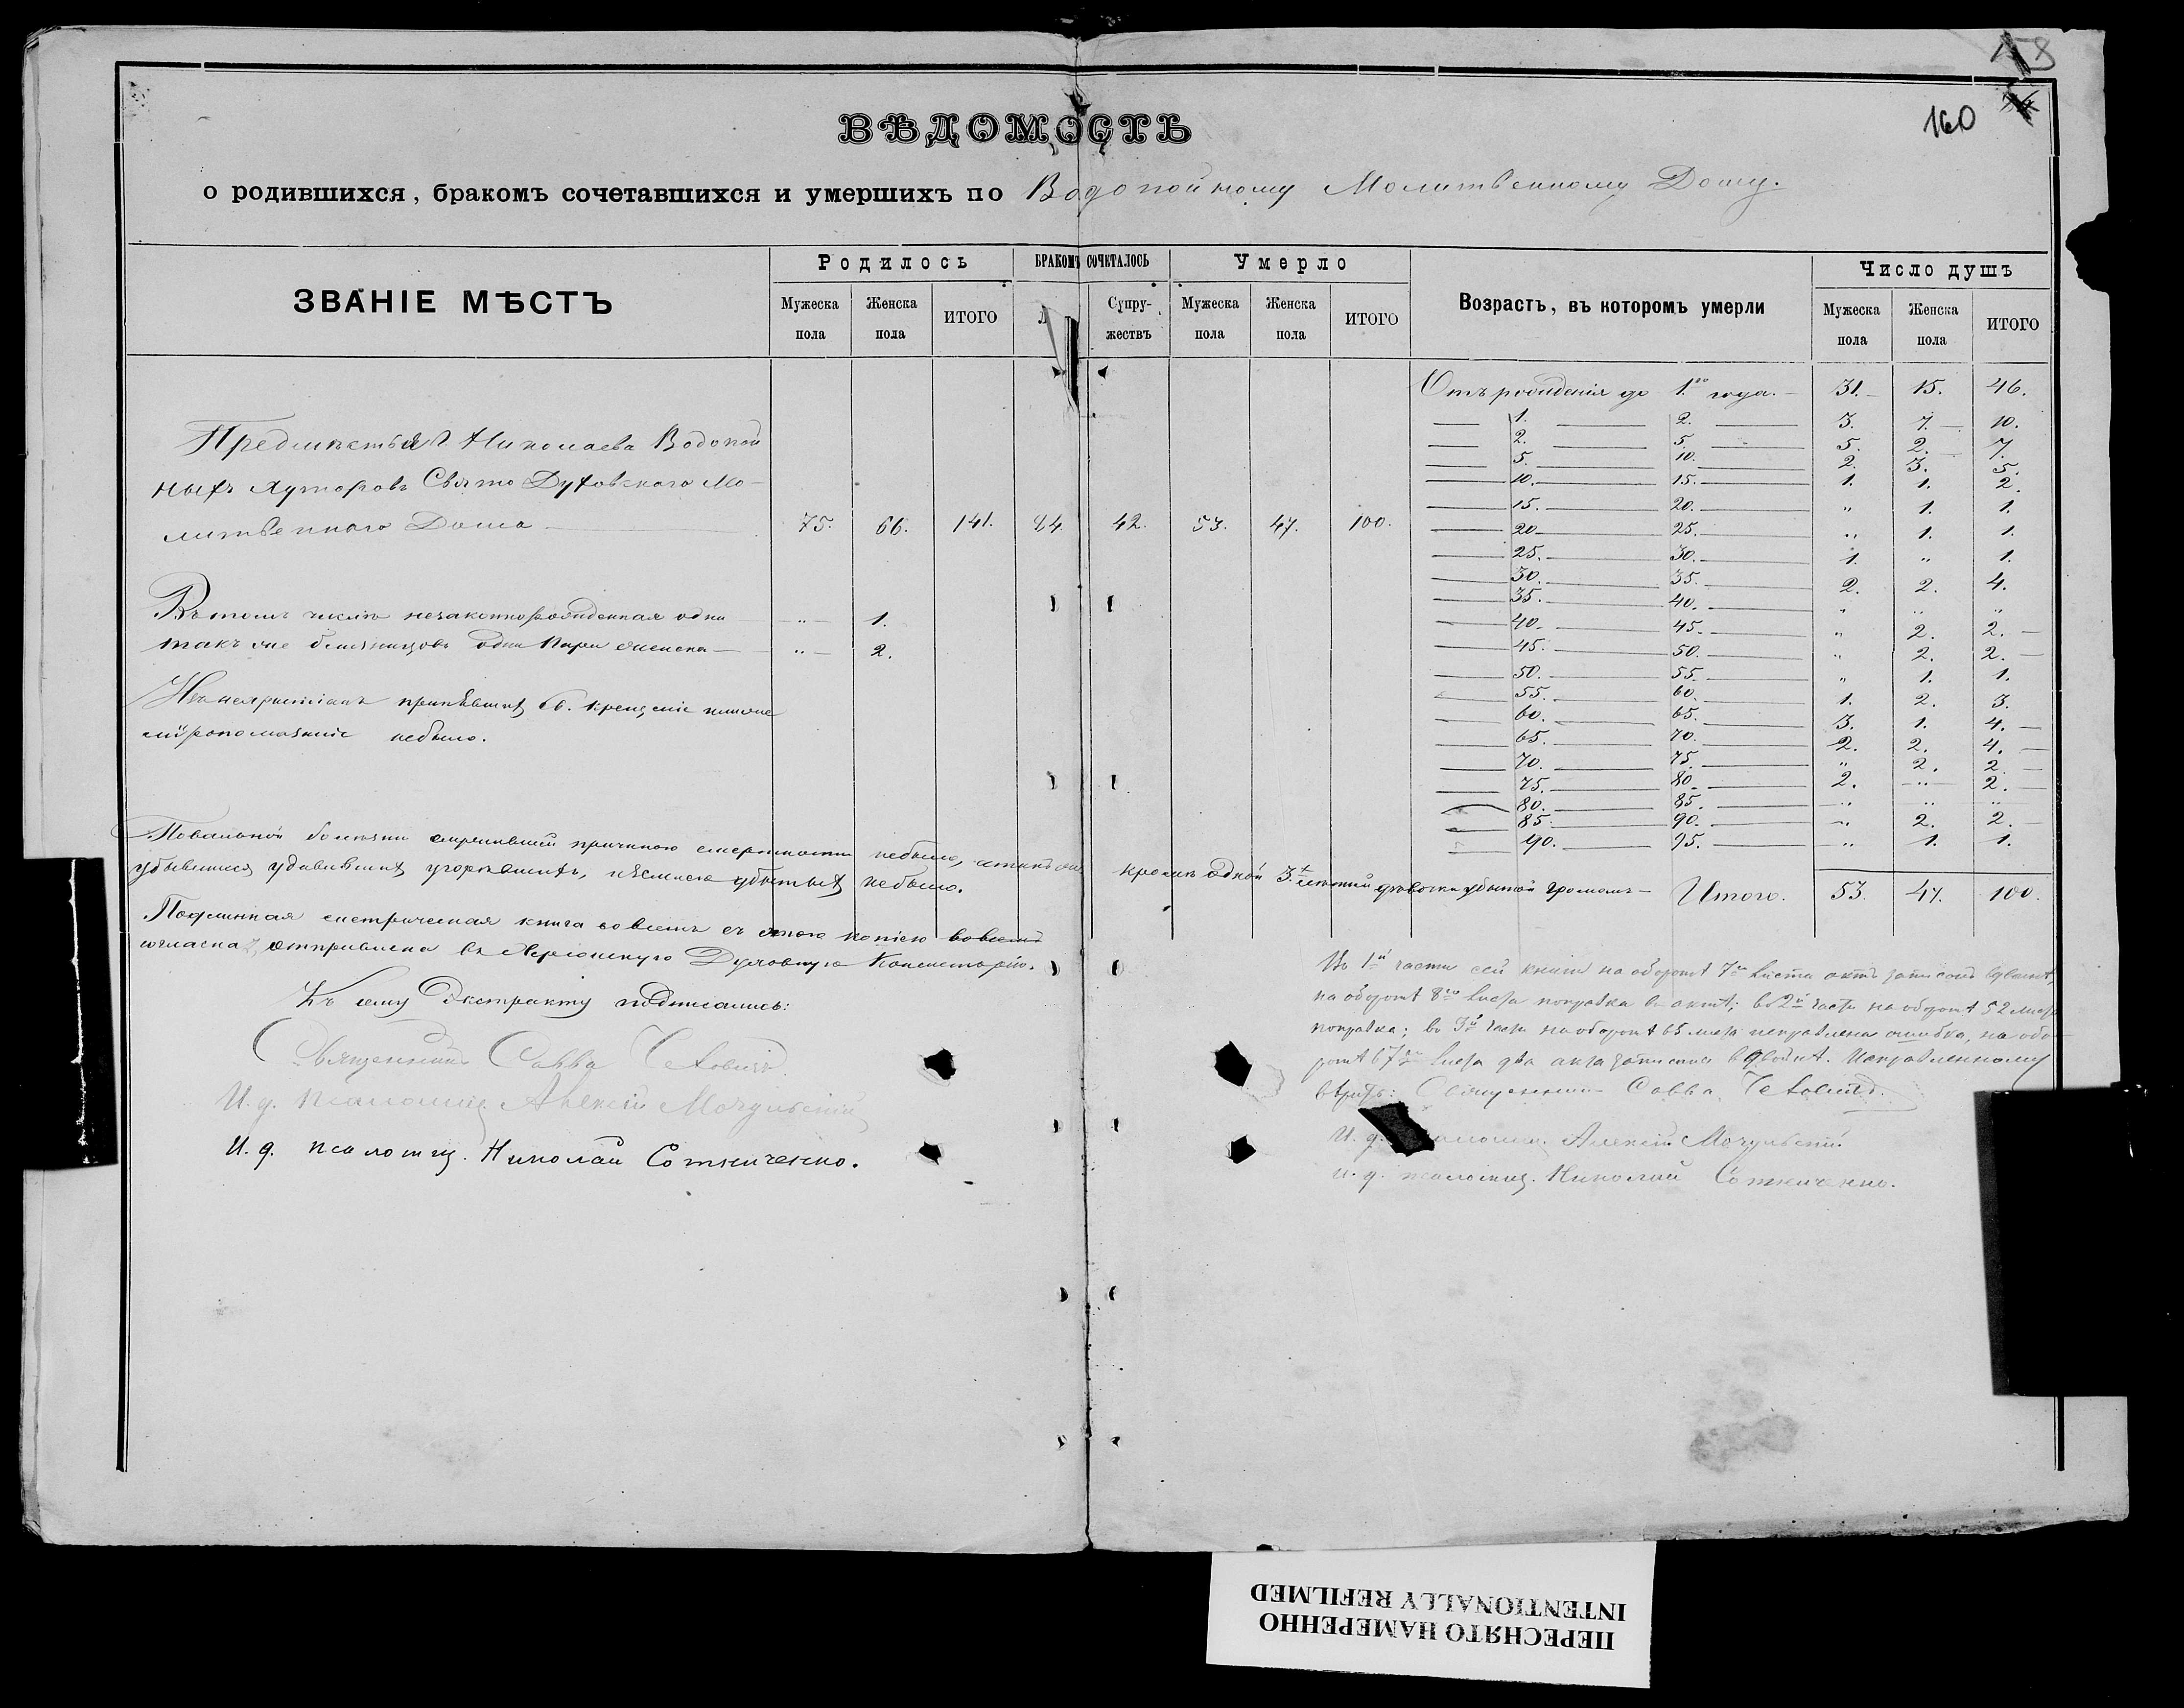 160
ВѢДОМОСТЬ
о родившихся, бракомъ сочетавшихся и умершихъ по Водопойному Молитвенному Дому.
ЗВАНІЕ МѢСТЪ
Родилось
БРАКОМЪ СОЧЕТАЛОСЬ
Умерло
Возрастъ, въ которомъ умерли
Число душъ
Мужеска пола
Женска пола
ИТОГО
Супружествъ
Мужеска пола
Женска пола
ИТОГО
Мужеска пола
Женска пола
ИТОГО
Предмѣстья г. Николаева Водопой
ныхъ хуторовъ Свято Духовскаго Мо-
литвеннаго Дома 75. 66. 141. 84. 42. 53. 47. 100.
Въ томъ числѣ незаконнорожденная одна " 1.
такъ же близнецовъ одна пара женска " 2.
Нехристіанъ принявшихъ Св. крещеніе
мѵропомазаніе небыло.
Отъ рожденія до 1го года. 31. 15. 46.
1. 2. 3. 7. 10.
2. 5. 5. 2. 7.
5. 10. 2. 3. 5.
10. 15. 1. 1. 2.
15. 20. " 1. 1.
20 25. " 1. 1.
25. 30. 1. " 1.
30. 35. 2. 2. 4.
35. 40. " " "
40. 45. " 2. 2.
45. 50. " 2. 2.
50. 55. " 1. 1.
55. 60. 1. 2. 3.
60. 65. 3. 1. 4.
65. 70. 2. 2. 4.
70. 75. " 2. 2.
75. 80. 2. " 2.
80. 85. " " "
85. 90. " 2. 2.
90. 95. " 1. 1.
Итого. 53. 47. 100.
Повальной болѣзни причиною смертности небыло,
удавившихъ угорѣвшихъ, убитыхъ небыло.
кромѣ одной 3хлѣтний дѣвочки убитой громомъ
Подлинная метрическая книга во всемъ съ этою копіею
согласна, отправлена въ Херсонскую Духовную Консисторію.
Къ сему Экстракту подписались:
Священникъ Савва
И. д. псаломщ. Алексій Мочульскій
И. д. псаломщ. Николай Сотниченко.
Въ 1й части сей книги на оборотѣ 7го листа актъ записанъ
на оборотѣ 8го листа поправка въ актѣ; во 2й части на оборотѣ 52 листа
поправка; въ 3й части на оборотѣ 65 листа исправлена ошибка, на обо-
ротѣ 67го листа два акта записаны Исправленному
вѣрить: Священникъ Савва
И. д. Алексій Мочульскій
И. д. псаломщ. Николай Сотниченко.
ПЕРЕСНЯТО НАМЕРЕННО
INTENTIONALLY REFILMED